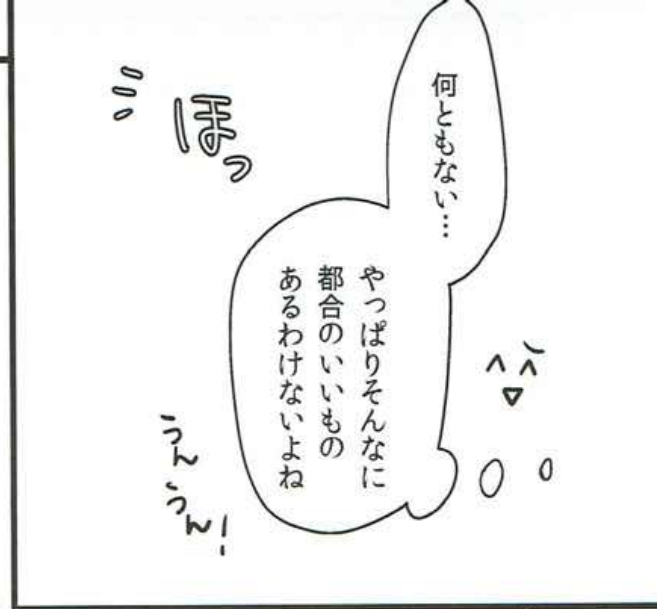 何ともない…
やっぱりそんなに
都合のいいもの
あるわけないよね
ほっ
うん
うん!